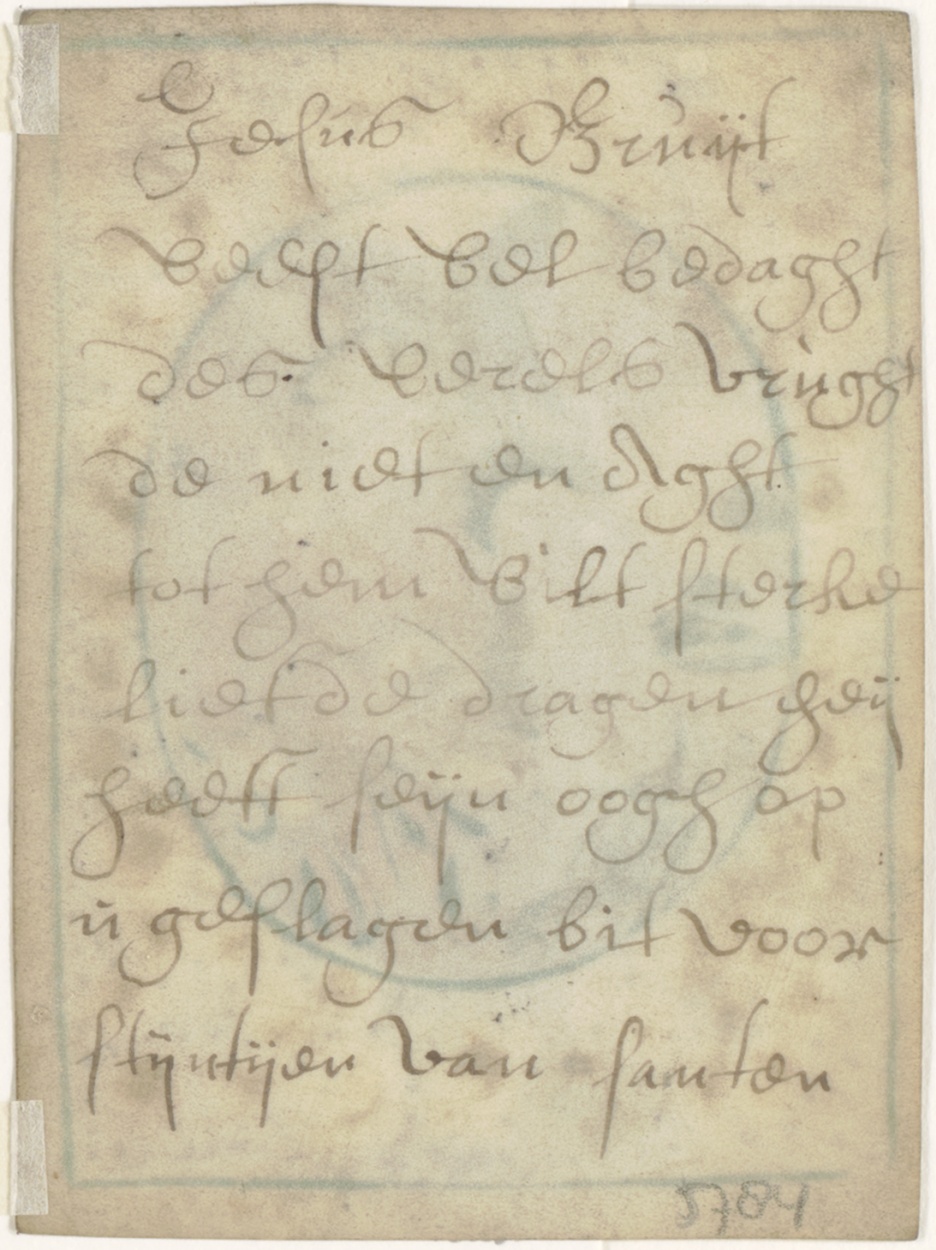 Jesus Bruijt
Weest wel bedaght
des werels vrught
de niet en Aght
tot hem wilt sterke
liefde dragen heij
heeft seijn oogh op
u geslagen bit voor
stijntijen van santen
5784